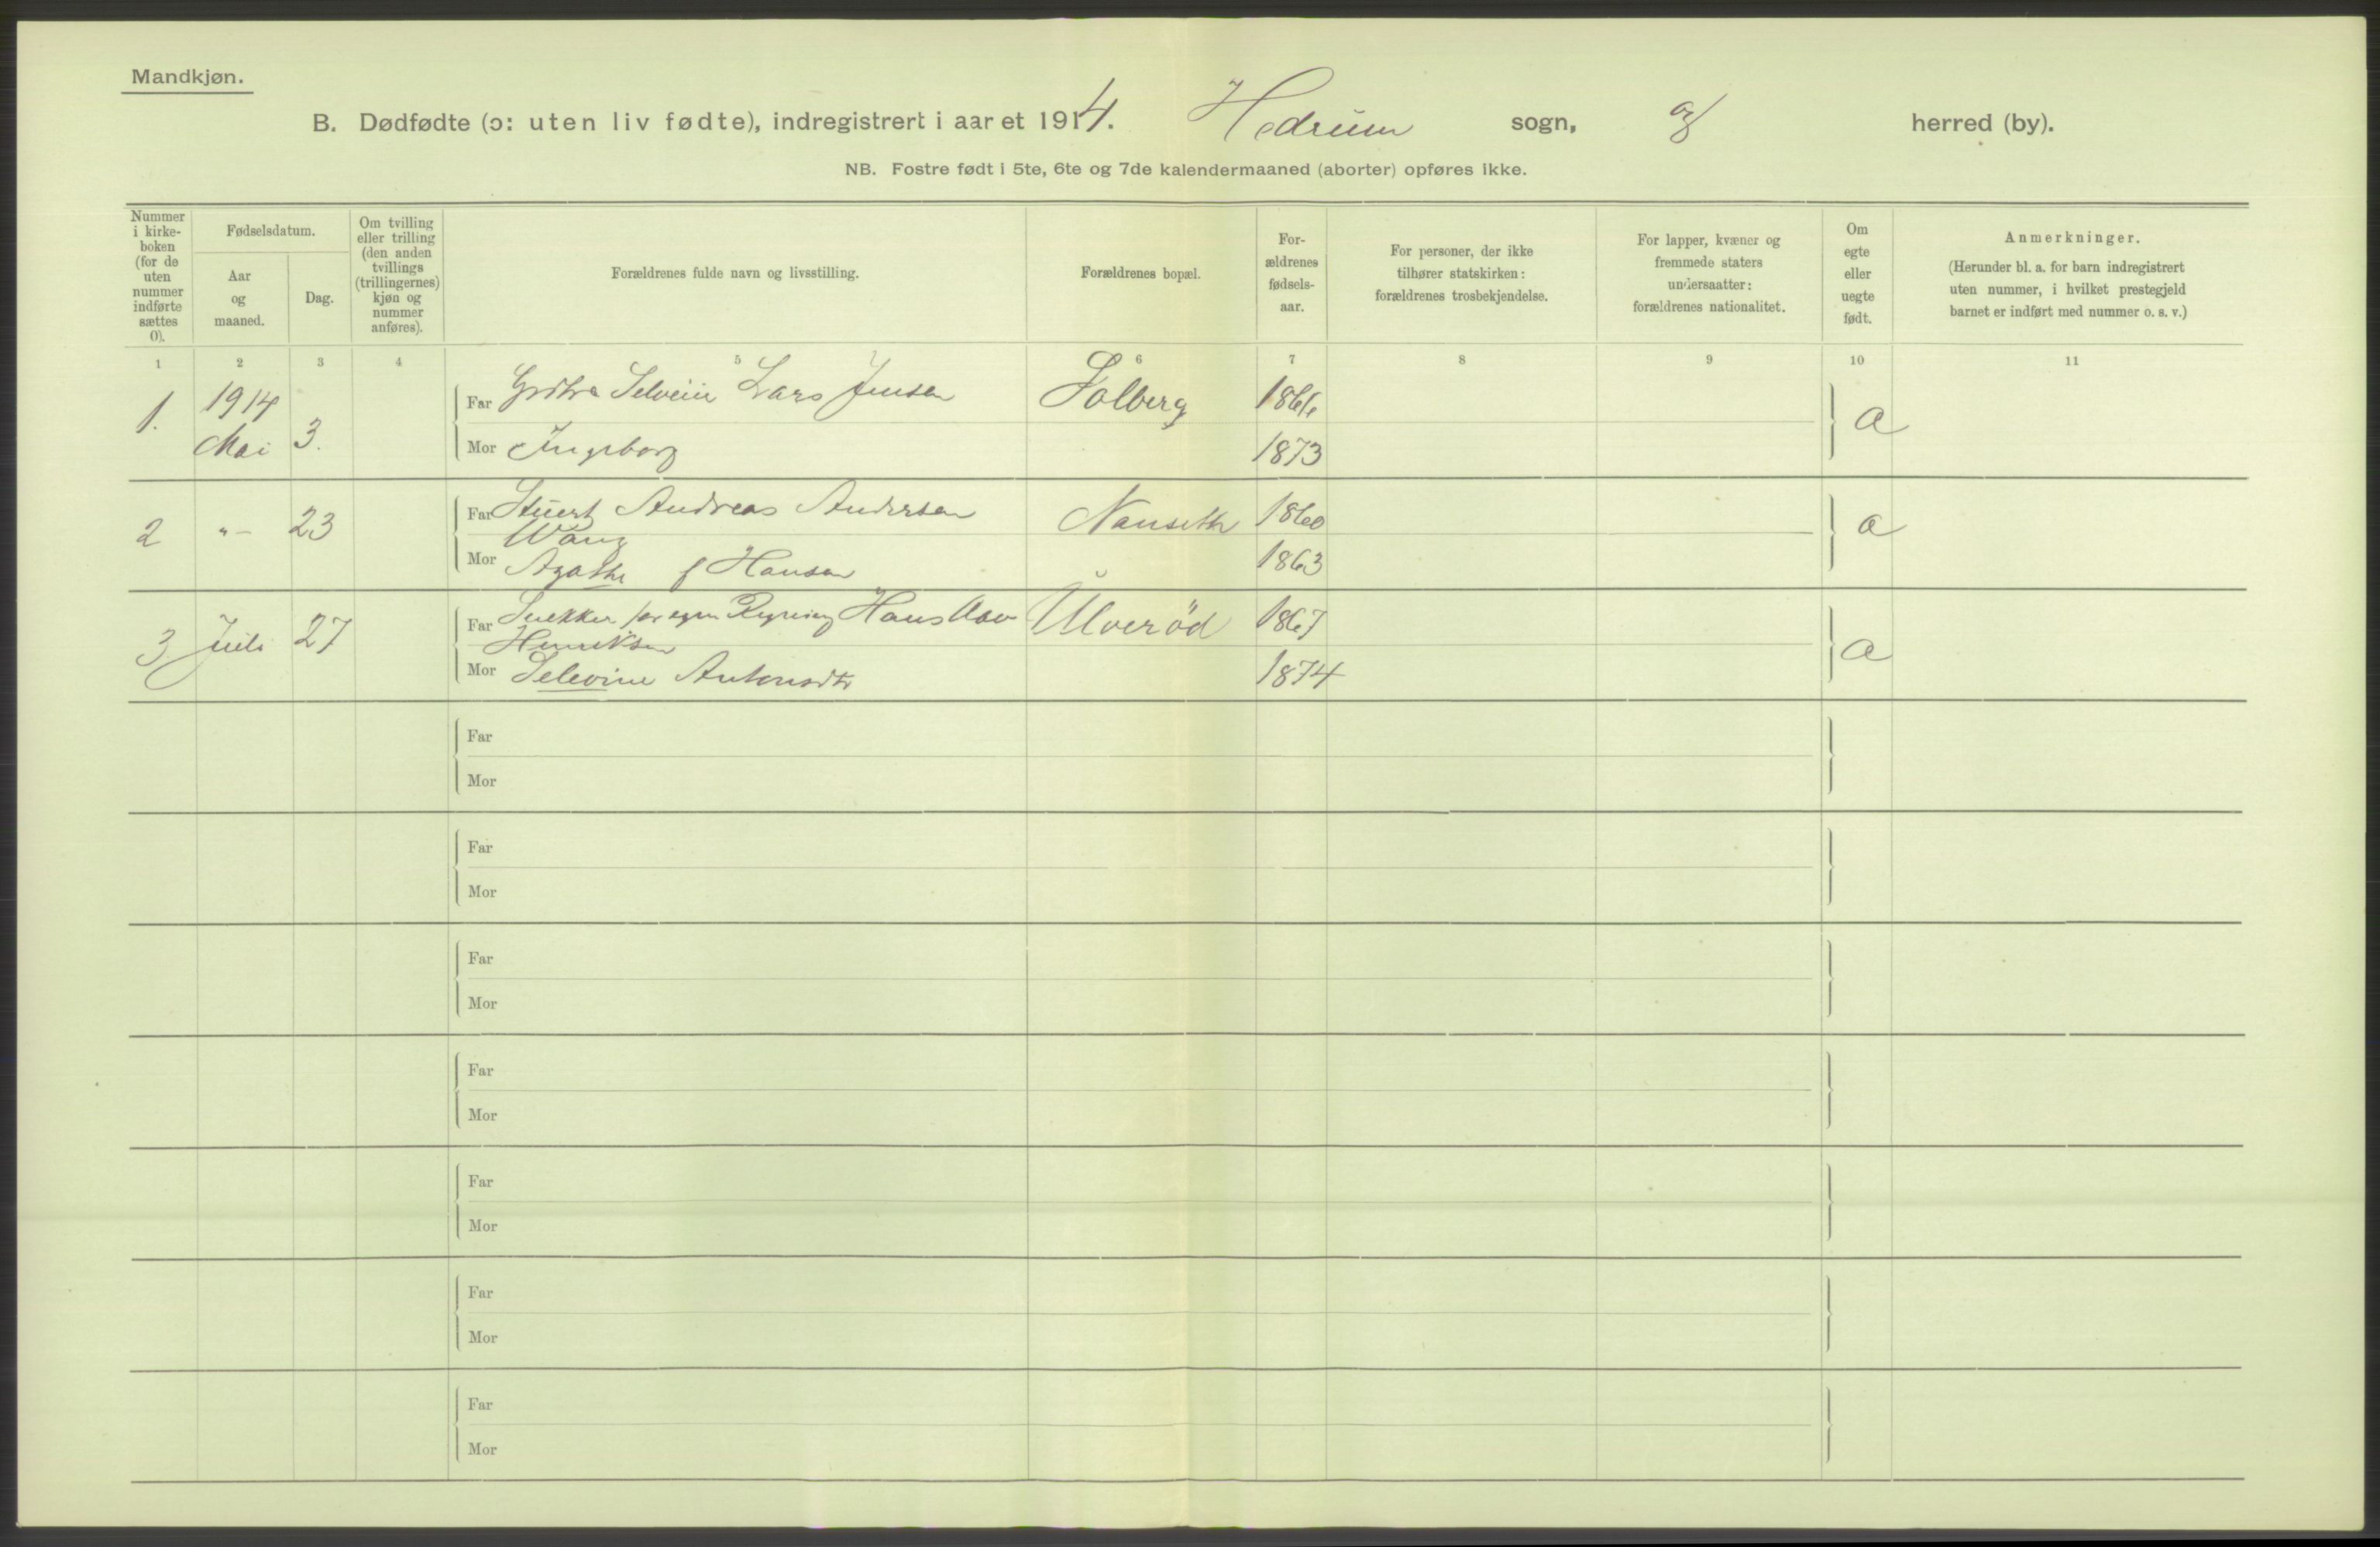 Mandkjøn.
B. Dødfødte (ɔ: uten liv fødte), indregistrert i aaret 1914. Hedrum sogn, og herred (by).
NB. Fostre født i 5te, 6te og 7de kalendermaaned (aborter) opføres ikke.
Nummer i kirke-boken (for de uten nummer indførte sættes 0).
Fødselsdatum.
Aar og maaned.
Dag.
Om tvilling eller trilling (den anden tvillings (trillingernes) kjøn og nummer anføres).
Forældrenes fulde navn og livsstilling.
Forældrenes bopæl.
For-ældrenes fødsels-aar.
For personer, der ikke tilhører statskirken: forældrenes trosbekjendelse.
For lapper, kvæner og fremmede staters undersaatter: forældrenes nationalitet.
Om egte eller uegte født.
Anmerkninger.
(Herunder bl. a. for barn indregistrert uten nummer, i hvilket prestegjeld barnet er indført med nummer o. s. v.)
1 2 3 4 5 6 7 8 9 10 11
1. 1914 Mai 3. Far Lars Jensen Solberg 1866 a
Mor Ingeborg 1873
2 "- 23 Far Andreas Andersen Nanseth 1860 a
Wang
Mor Agathe f Hansen 1863
3 Juli 27 Far Snekker for egen Regning Hans Ulverød 1867 a
Henriksen
Mor Selevine Antonsdtr 1874
Far
Mor
Far
Mor
Far
Mor
Far
Mor
Far
Mor
Far
Mor
Far
Mor